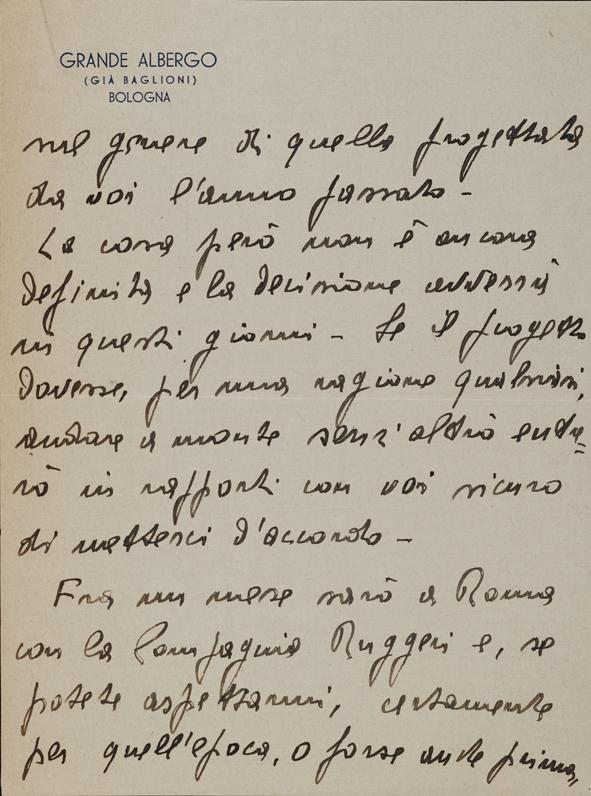 GRANDE ALBERGO
(GIÀ BAGLIONI)
BOLOGNA
sul genere di quella progettata
da voi l'anno passato -
La cosa però non è ancora
definita e la decisione avverrà
in questi giorni - Se il progetto
dovesse, per una ragione qualsiasi,
andare a monte senz'altro entre=
rò in rapporti con voi sicuro
di metterci d'accordo -
Fra un mese sarò a Roma
con la Compagnia Ruggeri e, se
potete aspettarmi, certamente
per quell'epoca, o forse anche prima,